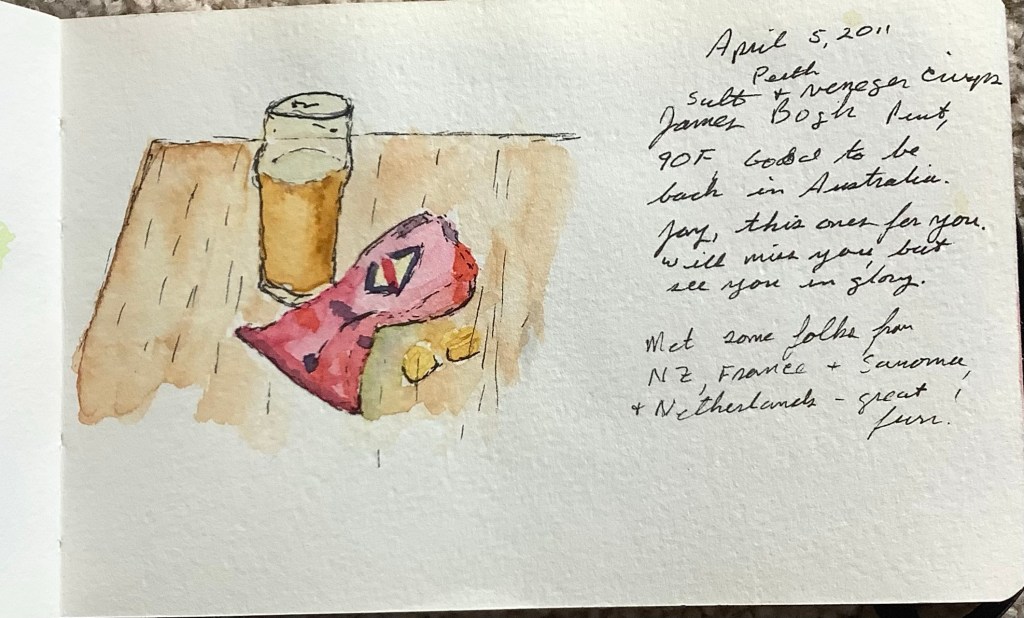 April 5, 2011
Perth
Salt + veneger crisps
James Bogh Pint,
90F, Good to be
back in Australia.
Jay, this ones for you.
Will miss you, but
see you in glory.
Met some folks from
NZ, France + Sanoma,
+ Netherlands - great
fun!